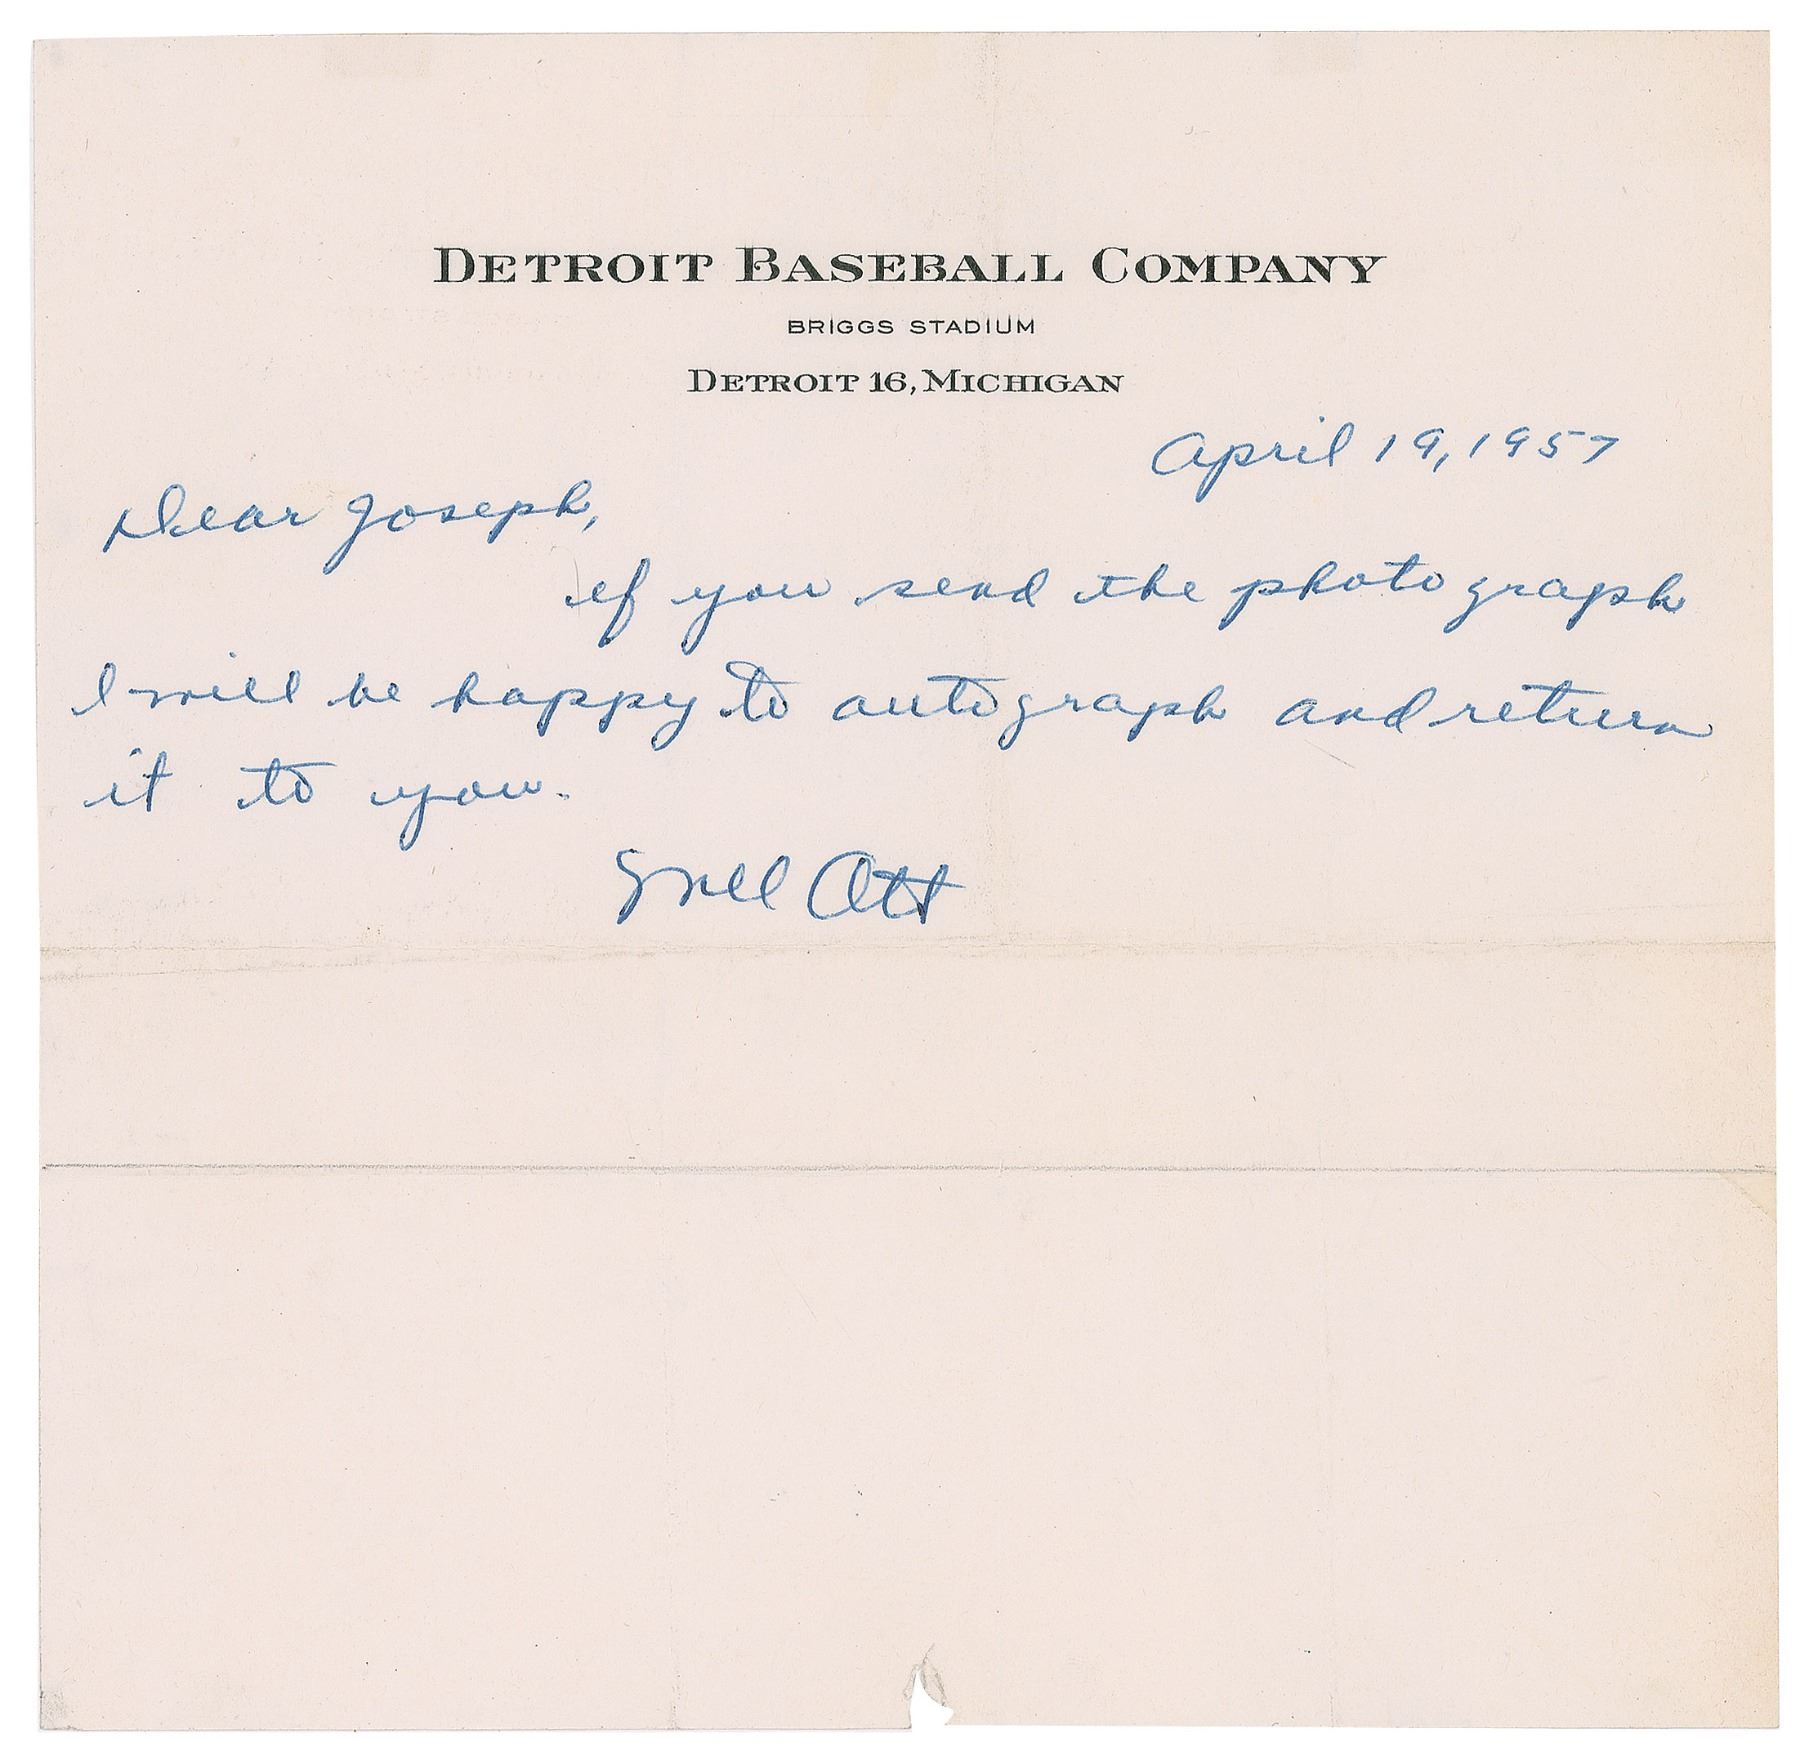 DETROIT BASEBALL COMPANY
BRIGGS STADIUM
DETROIT 16, MICHIGAN
April 19, 1957
Dear Joseph,
if you send the photograph
I will be happy to autograph and return
it to you.
Mel Ott